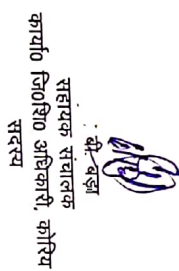 : बी. बड़ा
सहायक संचालक
कार्या० जि०शि० अधिकारी, कोरिय
सदस्य